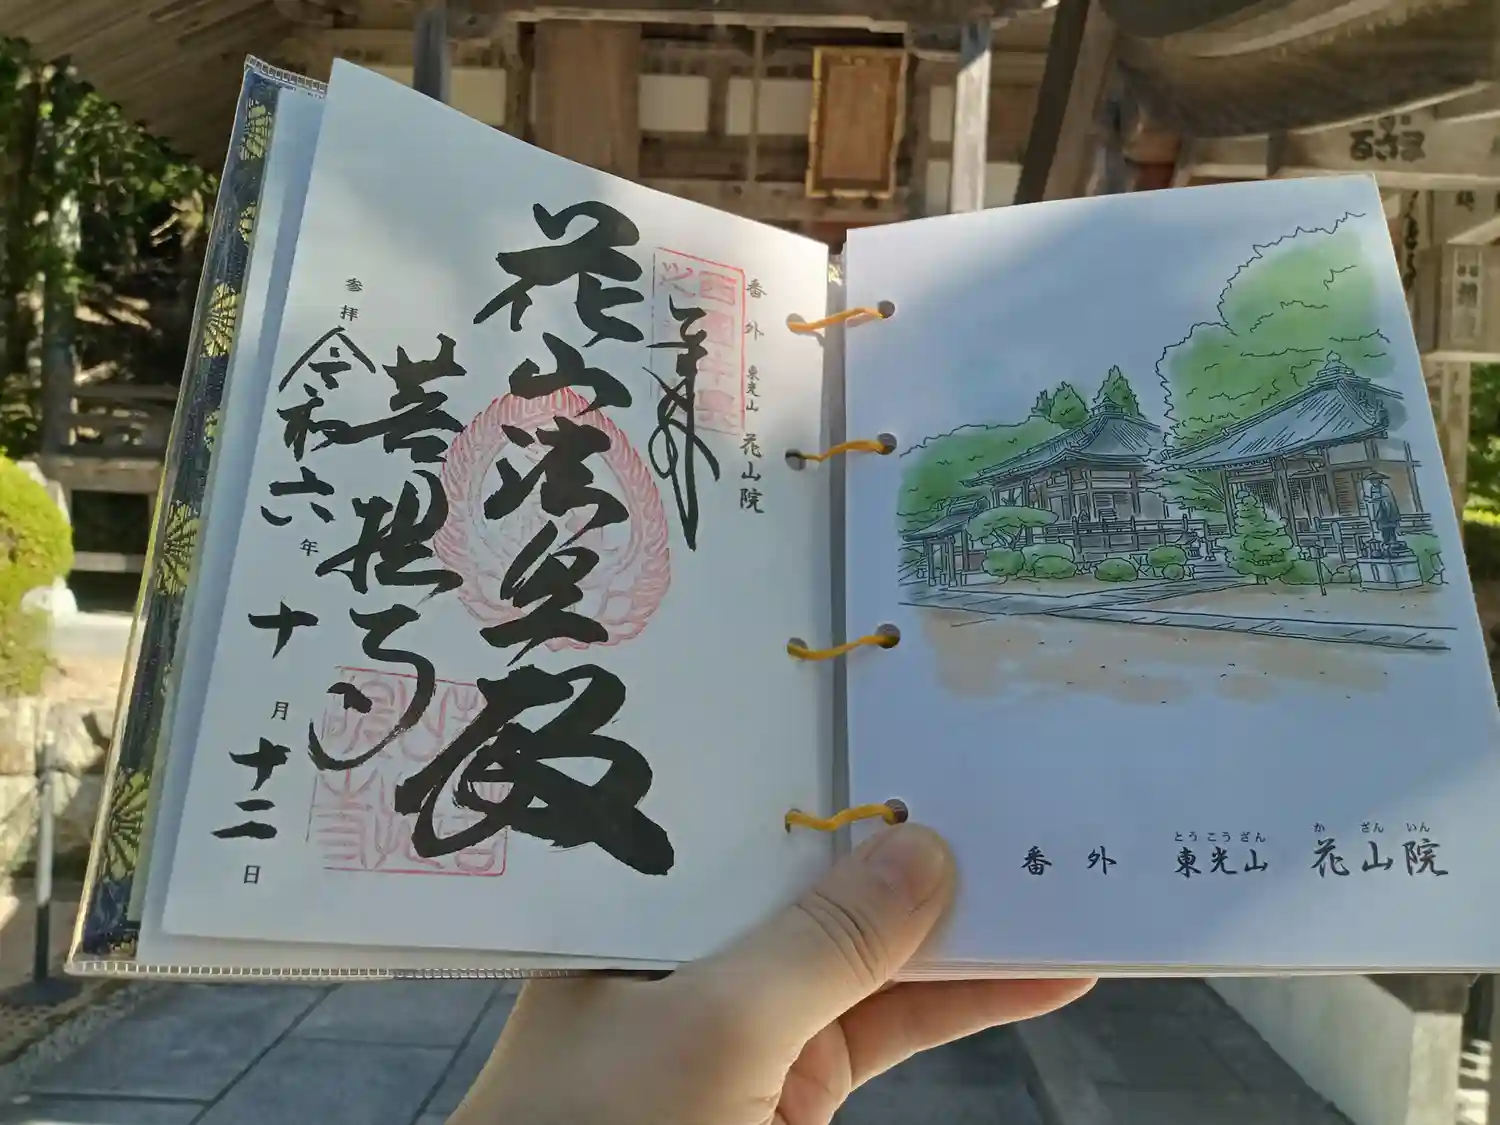 番外 東光山 花山院
奉拝
花山法皇殿
菩提寺
参拝
令和六年十月十二日
とうこうざん かざんいん
番外 東光山 花山院